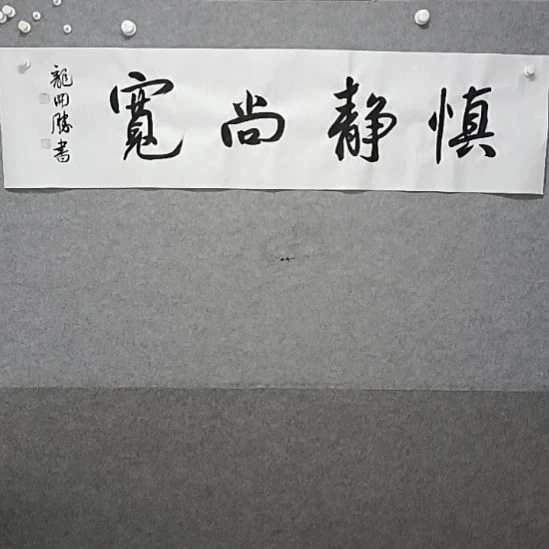 慎静尚寬
龍開勝書